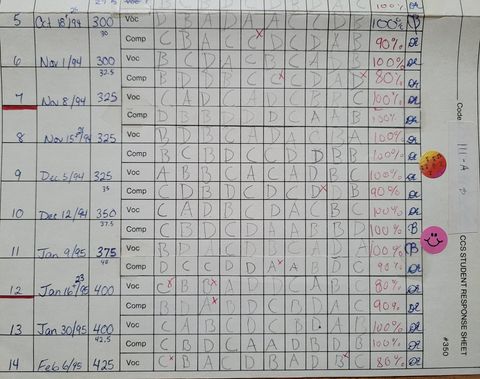 100%
5 Oct 18/94 300 Voc D B A D A A C C D B 100% B
30 Comp C B A C C D C D A B 90% DR
6 Nov 1/94 300 Voc B C D A C B C A D B 100% DR
32.5 Comp B D B B C C C D A D 80% DR
7 Nov 8/94 325 Voc C A D C A D C B B C 100% DR
Comp D B B D D D C A A B 100% DR
8 Nov 15/94 325 Voc B D B C A D A C B A 100% DR
Comp B C B D C C D D B B 100% DR
9 Dec 5/94 325 Voc A B B C A C A D B C 100% DR
35 Comp C D B D C D C D D B 90% DR
10 Dec 12/94 350 Voc C A D B C D A C B C 100% DR
37.5 Comp C B D C A A B B D 100% B
11 Jan 9/95 375 Voc B D A C D C A D A 100% B
40 Comp D C C D D A A B B C 90% DR
12 Jan 16/95 400 Voc C B B A D D C A B C 80% DR
23
Comp B D A B D C B D A C 90% DR
13 Jan 30/95 400 Voc C A B C D C B D A B 100% DR
42.5 Comp C B D C A A D D B B 100% DR
14 Feb 6/95 425 Voc C B A C D B A D B C 80% DR
Code 111-A
CCS STUDENT RESPONSE SHEET
#350